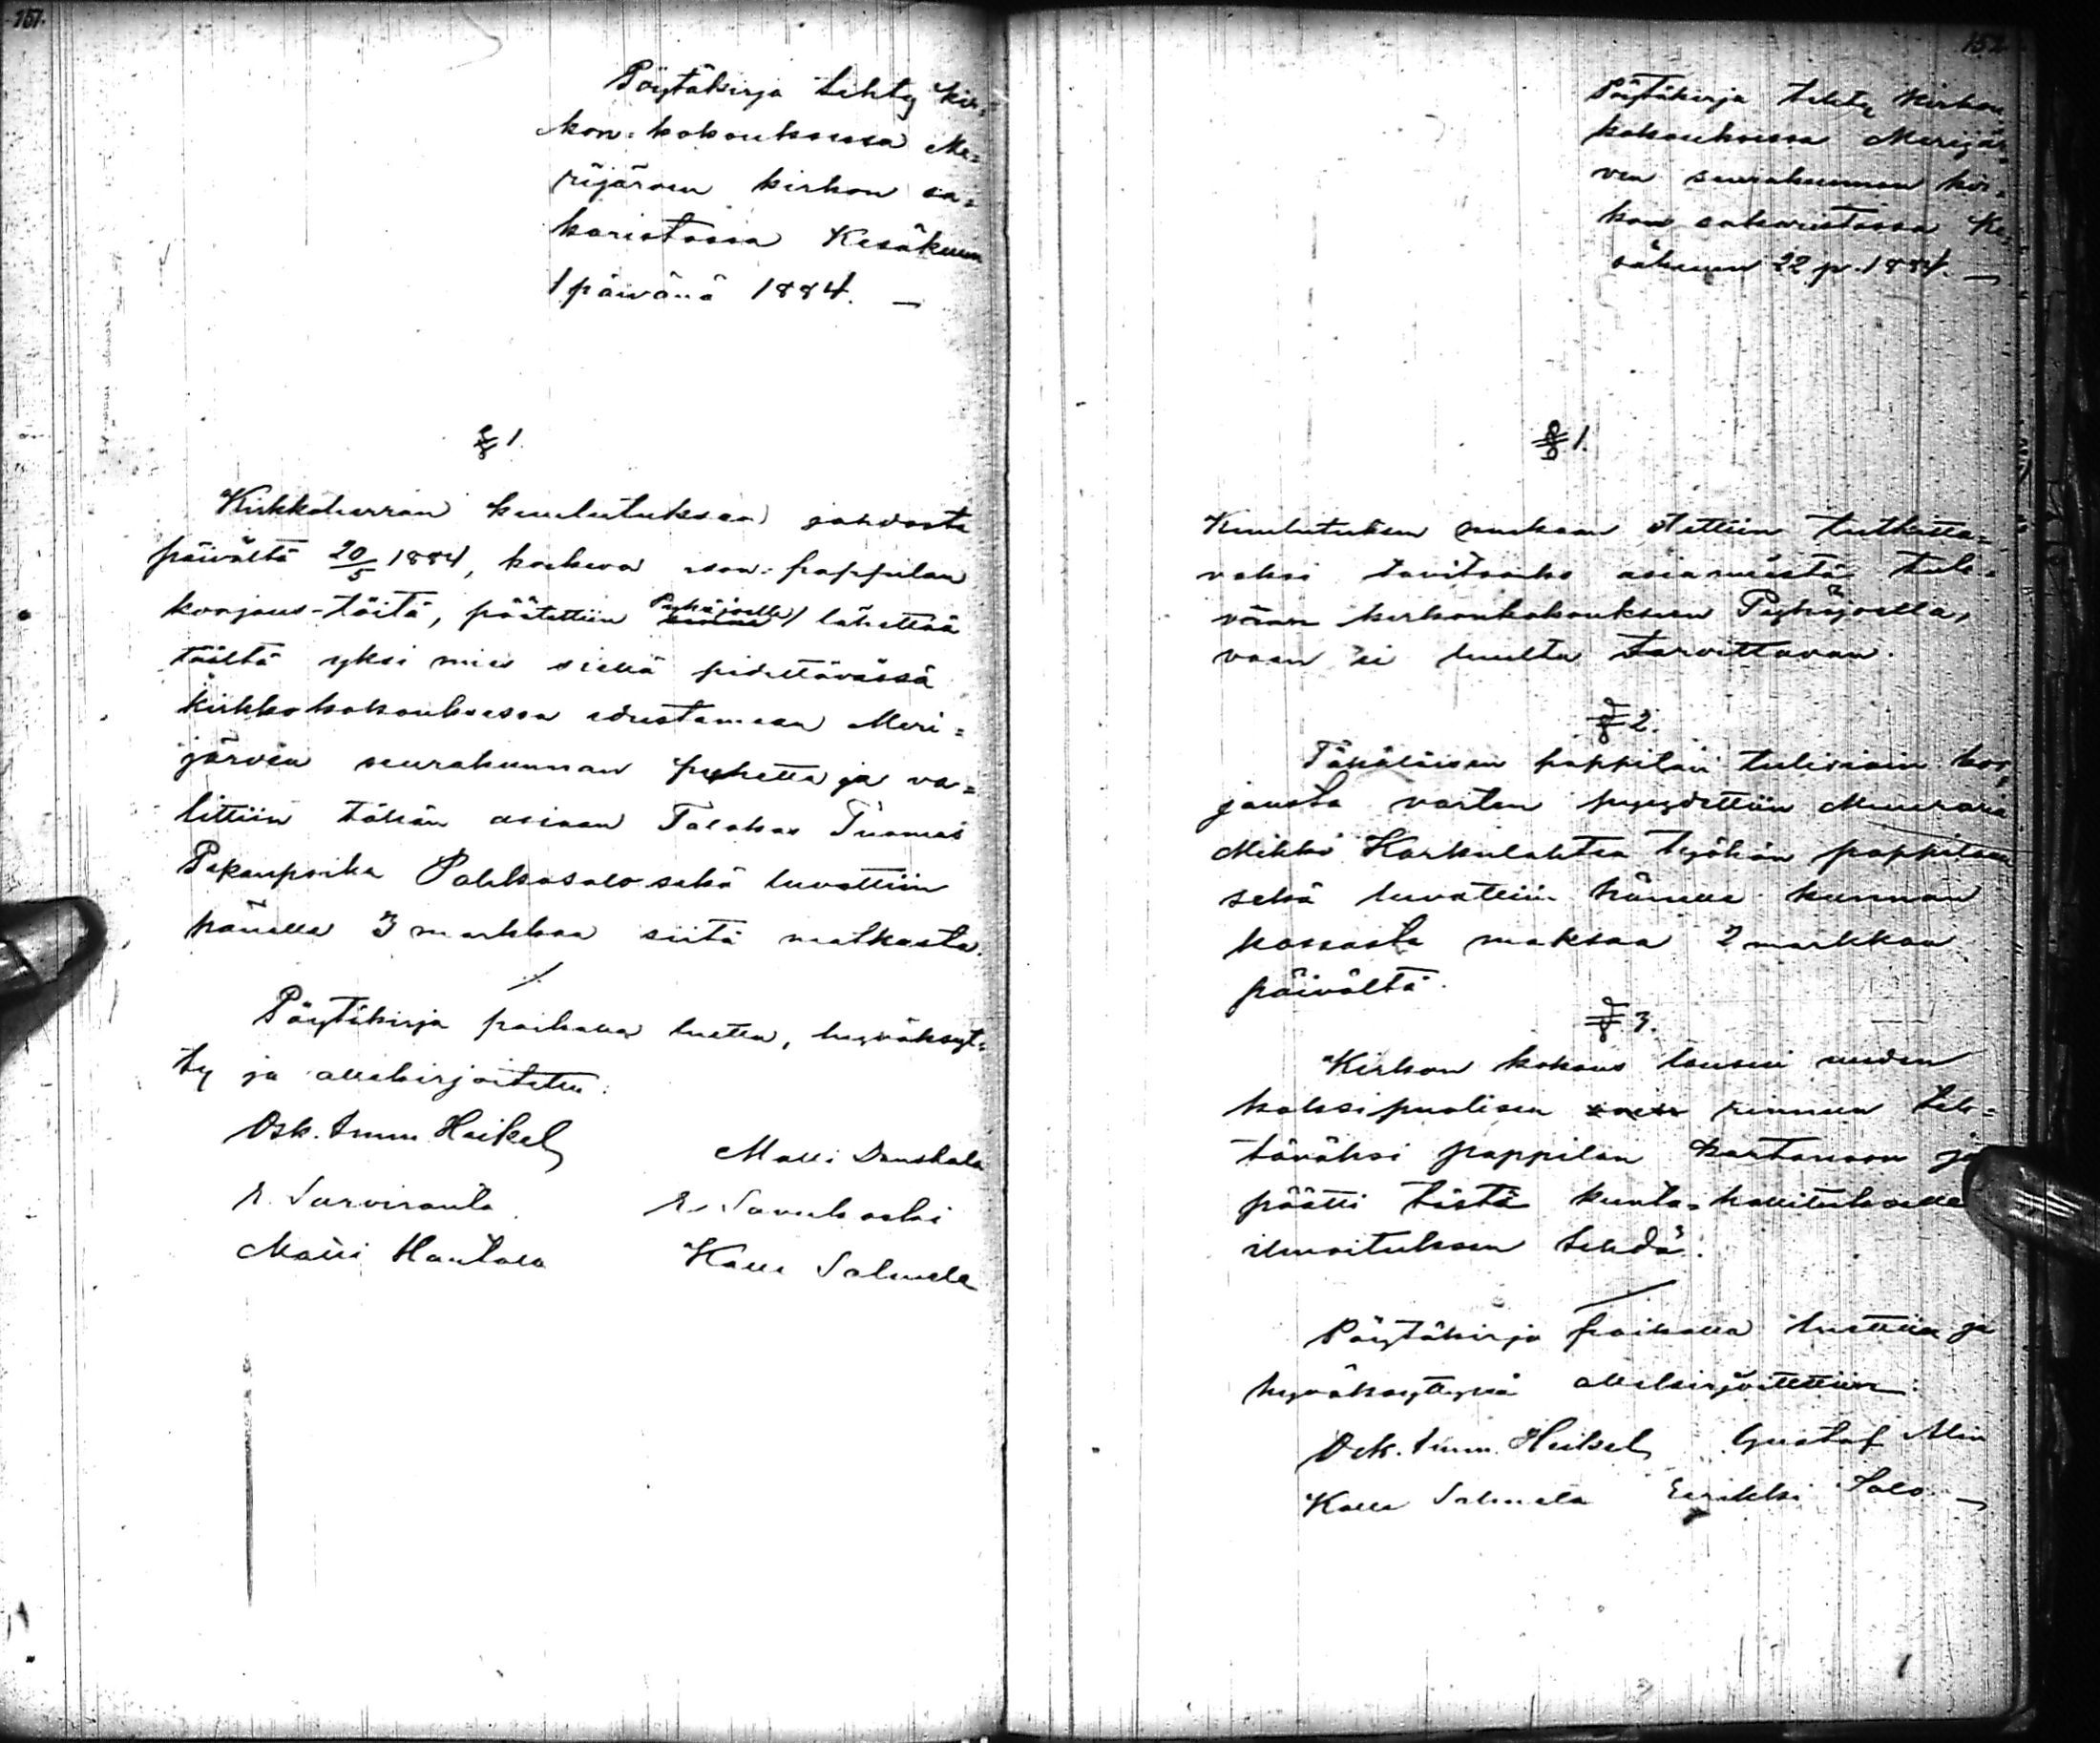 151.
Pöytäkirja tehty kir=
kon=kokouksessa Me=
rijärven kirkon sa=
karistossa Kesäkuun
1 päivänä 1884. —
§ 1.
Kirkkoherran kuulutuksen johdosta
päivältä 20/5 1884, koskeva ison=pappilan
korjaus-töitä, päätettiin Pyhäjoelle lähettää
täältä yksi mies siellä pidettävässä
kirkkokokouksessa edustamaan Meri=
järven seurakunnan puhetta ja va=
littiin tähän asiaan Talokas Tuomas
Pekanpoika Pahkasalo sekä luvattiin
hänelle 3 markkaa siitä matkasta.
Pöytäkirja paikalla luettu, hyväksyt=
ty ja allekirjoitettu:
Osk. Imm. Heikel
Matti
E. Sarviranta
E.
Matti Hautala
Kalle Salmela
152
Pöytäkirja tehty Kirkon
kokouksessa Merijär=
ven seurakunnan kir=
kon sakaristossa Ke=
säkuun 22 p. 1884. —
§ 1.
Kuulutuksen mukaan otettiin tutkitta=
vaksi tarvitaanko asiamiestä tule=
vaan kirkonkokoukseen Pyhäjoella,
vaan ei luultu tarvittavan.
§ 2.
Tänäläisen pappilan tulisiain kor=
jausta varten pyydettiin Muuraria
Mikki Karkulahtea työhön pappilaan
sekä luvattiin hänelle kunnan
kassasta maksaa 2 markkaa
päivältä.
§ 3.
Kirkon kokous lausui uuden
kaksipuolisen rinnun teh=
täväksi pappilan kartanoon ja
päätti tästä kunta=hallitukselle
ilmoituksen tehdä.
Pöytäkirja paikalla luettiin ja
hyväksyttynä allekirjoitettiin:
Osk. Imm. Heikel Gustaf
Kalle Salmela Eerikki Salo. —